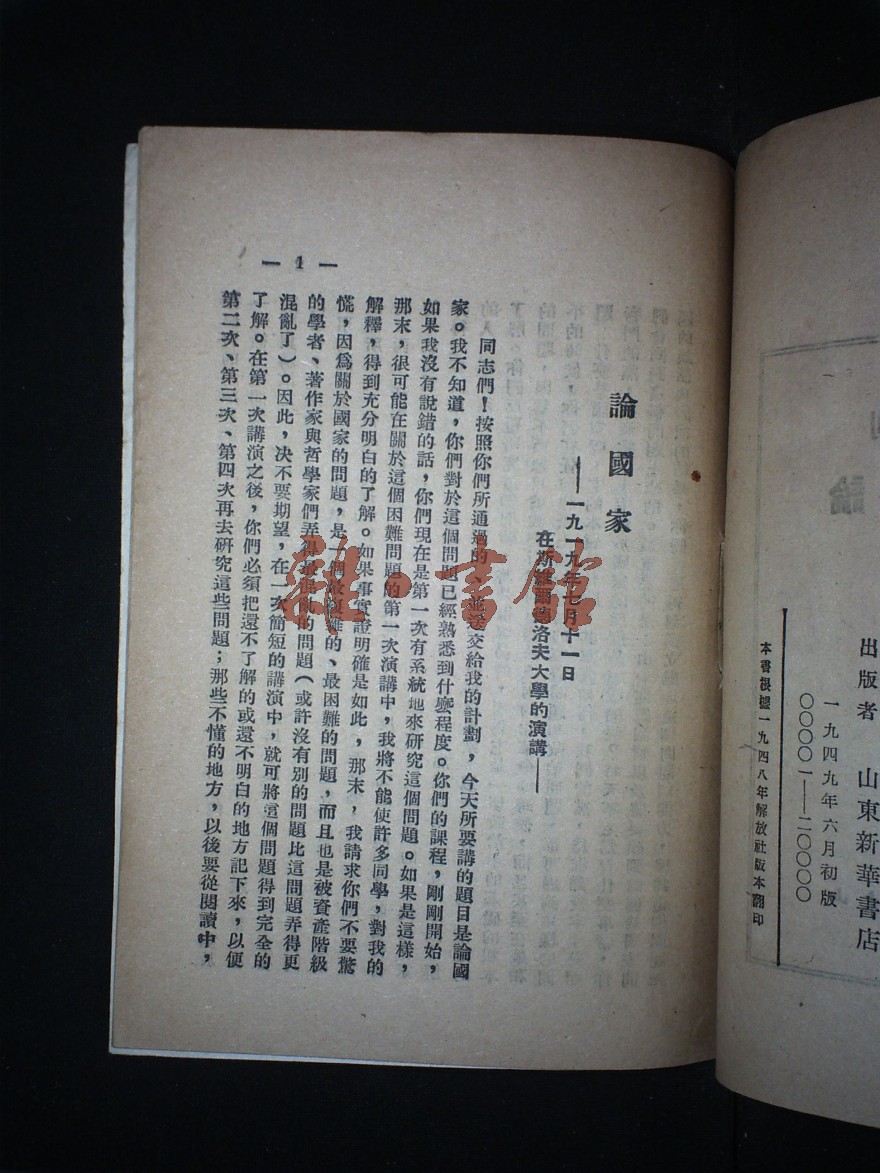 出版者 山東新華書店
一九四九年六月初版
〇〇〇〇一——二〇〇〇〇
本書根據一九四八年解放社版本翻印
論國家
——一九一九年七月十一日
在斯維爾德洛夫大學的演講——
同志們！按照你們所通過的、並送交給我的計劃，今天所要講的題目是論國
家。我不知道，你們對於這個問題已經熟悉到什麼程度。你們的課程，剛剛開始，
如果我沒有說錯的話，你們現在是第一次有系統地來研究這個問題。如果是這樣，
那末，很可能在關於這個困難問題的第一次演講中，我將不能使許多同學，對我的
解釋，得到充分明白的了解。如果事實證明確是如此，那末，我請求你們不要驚
慌，因爲關於國家的問題，是一個最複雜的、最困難的問題，而且也是被資產階級
的學者、著作家與哲學家們弄得最混亂的問題（或許沒有別的問題比這問題弄得更
混亂了）。因此，決不要期望，在一次簡短的講演中，就可將這個問題得到完全的
了解。在第一次講演之後，你們必須把還不了解的或還不明白的地方記下來，以便
第二次、第三次、第四次再去研究這些問題；那些不懂的地方，以後要從閱讀中，
— 1 —
雜·書館